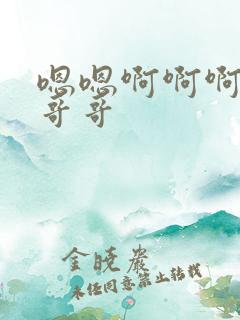 嗯嗯啊啊啊
哥哥
金晓岩
未经同意禁止转载